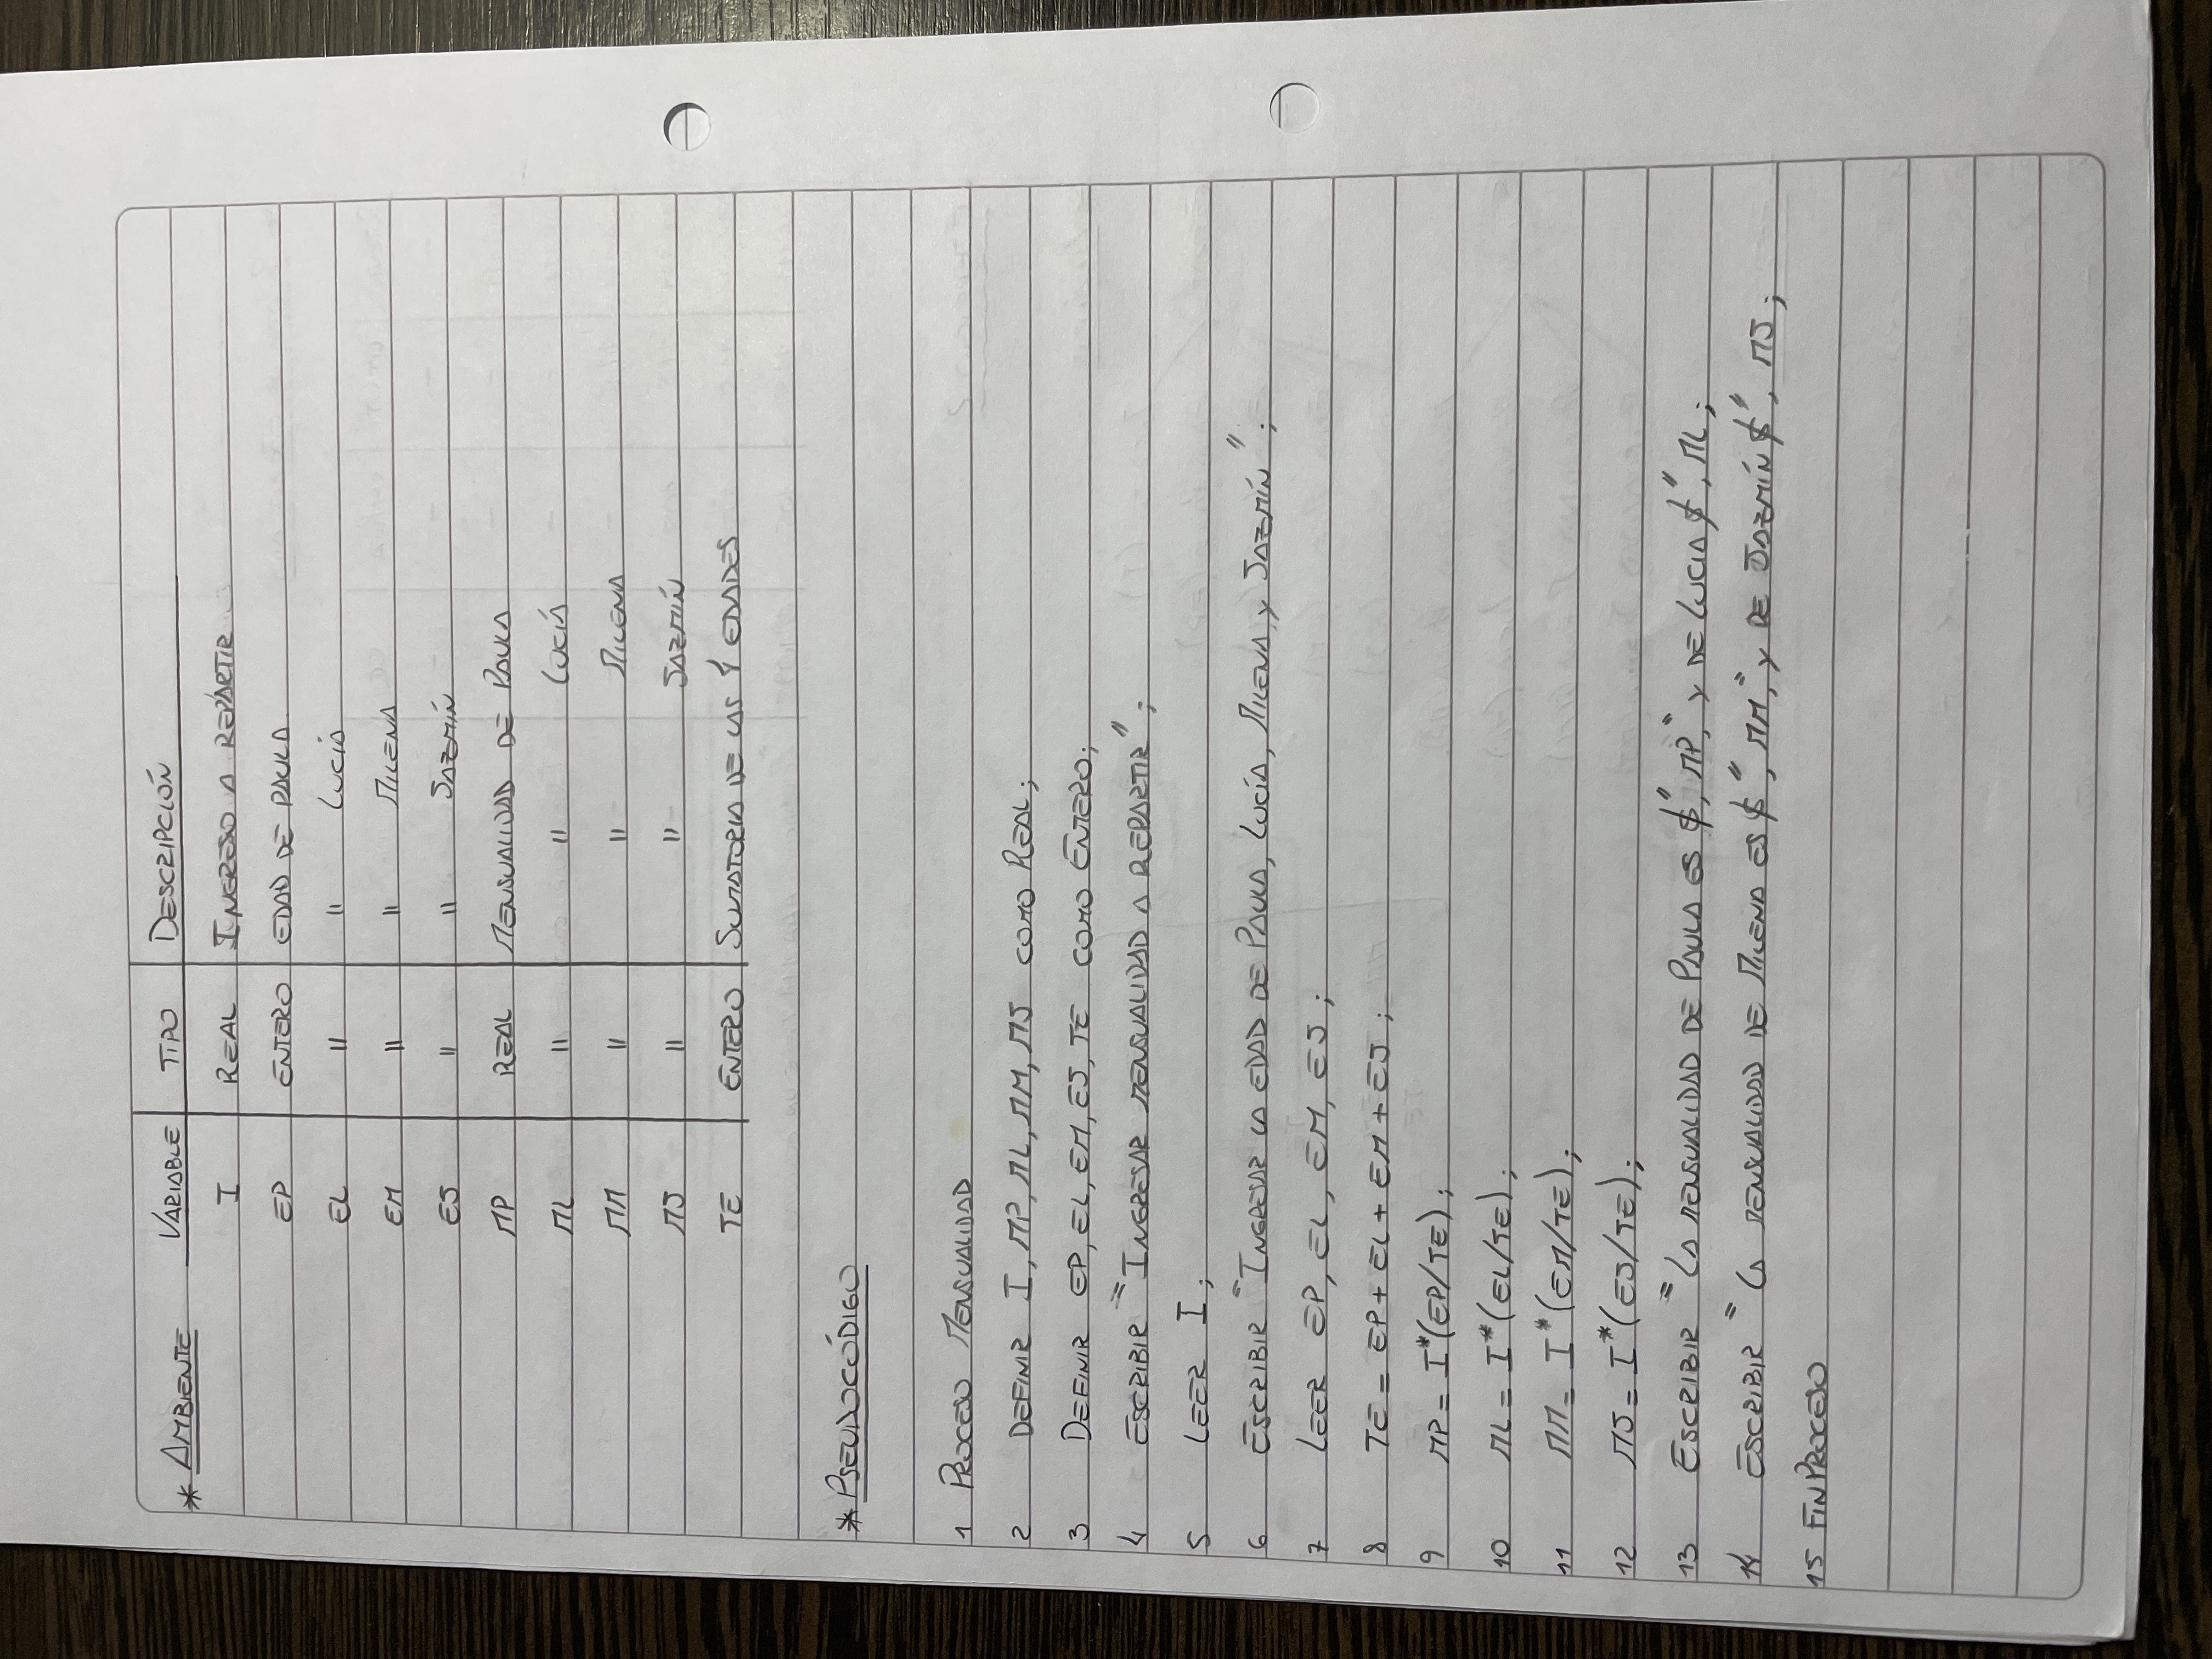 * AMBIENTE VARIABLE TIPO DESCRIPCIÓN
I REAL INGRESO A REPARTIR
EP ENTERO EDAD DE PAULA
EL " " LUCÍA
EM " " MILENA
EJ " " JAZMÍN
MP REAL MENSUALIDAD DE PAULA
ML " " LUCÍA
MM " " MILENA
MJ " " JAZMÍN
TE ENTERO SUMATORIA DE LAS 4 EDADES
* PSEUDOCÓDIGO
1 PROCESO MENSUALIDAD
2 DEFINIR I, MP, ML, MM, MJ COMO REAL;
3 DEFINIR EP, EL, EM, EJ, TE COMO ENTERO;
4 ESCRIBIR "INGRESAR MENSUALIDAD A REPARTIR";
5 LEER I;
6 ESCRIBIR "INGRESAR LA EDAD DE PAULA, LUCÍA, MILENA Y JAZMÍN";
7 LEER EP, EL, EM, EJ;
8 TE = EP + EL + EM + EJ;
9 MP = I*(EP/TE);
10 ML = I*(EL/TE);
11 MM = I*(EM/TE);
12 MJ = I*(EJ/TE);
13 ESCRIBIR "LA MENSUALIDAD DE PAULA ES $", MP, " Y DE LUCIA $", ML;
14 ESCRIBIR "LA MENSUALIDAD DE MILENA ES $", MM, " Y DE JAZMÍN $", MJ;
15 FINPROCESO